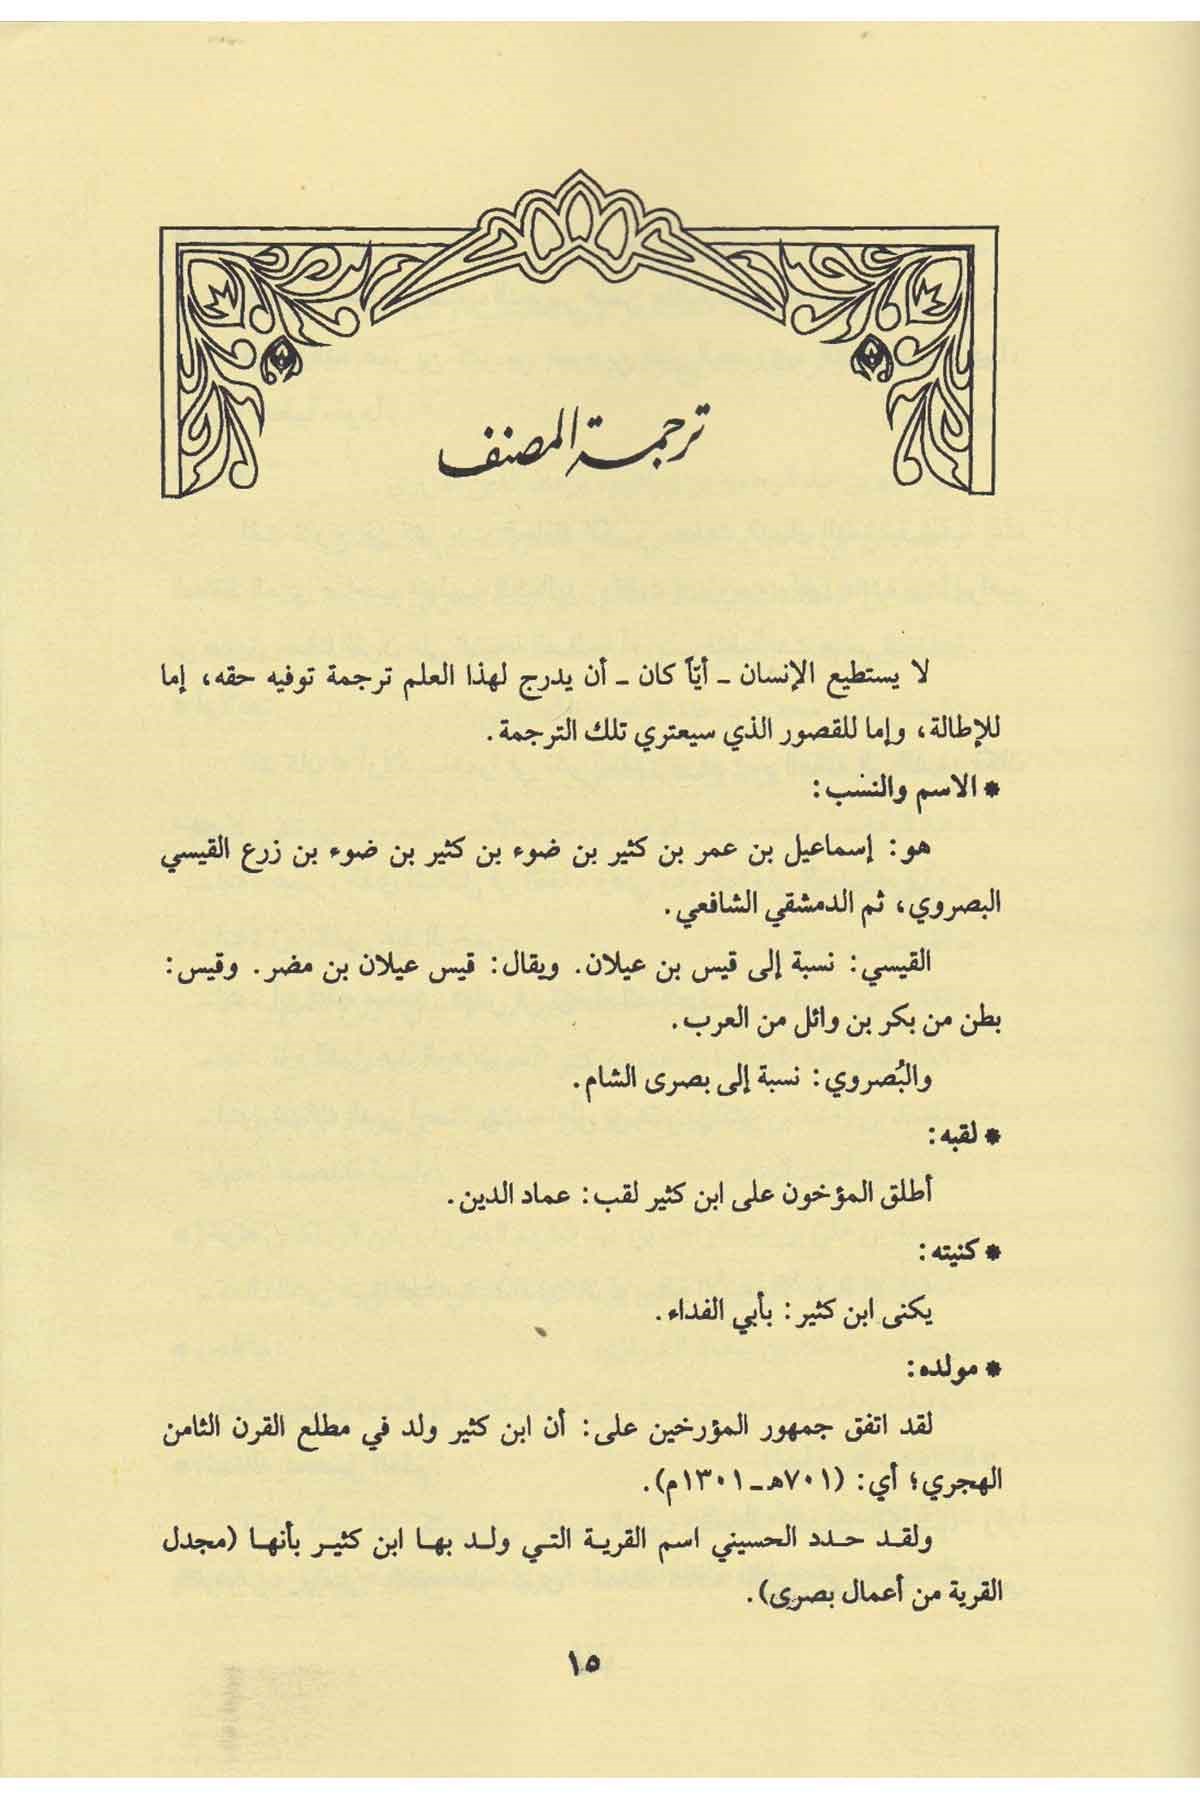 ترجمة المصنف
لا يستطيع الإنسان ـ أيّاً كان ـ أن يدرج لهذا العلم ترجمة توفيه حقه، إما
للإطالة، وإما للقصور الذي سيعتري تلك الترجمة.
* الاسم والنسب:
هو: إسماعيل بن عمر بن كثير بن ضوء بن كثير بن ضوء بن زرع القيسي
البصروي، ثم الدمشقي الشافعي.
القيسي: نسبة إلى قيس بن عيلان. ويقال: قيس عيلان بن مضر. وقيس:
بطن من بكر بن وائل من العرب.
والبُصروي: نسبة إلى بصرى الشام.
* لقبه:
أطلق المؤخون على ابن كثير لقب: عماد الدين.
* كنيته:
يكنى ابن كثير: بأبي الفداء.
* مولده:
لقد اتفق جمهور المؤرخين على: أن ابن كثير ولد في مطلع القرن الثامن
الهجري؛ أي: (٧٠١هـ ـ ١٣٠١م).
ولقد حدد الحسيني اسم القرية التي ولد بها ابن كثير بأنها (مجدل
القرية من أعمال بصرى).
١٥